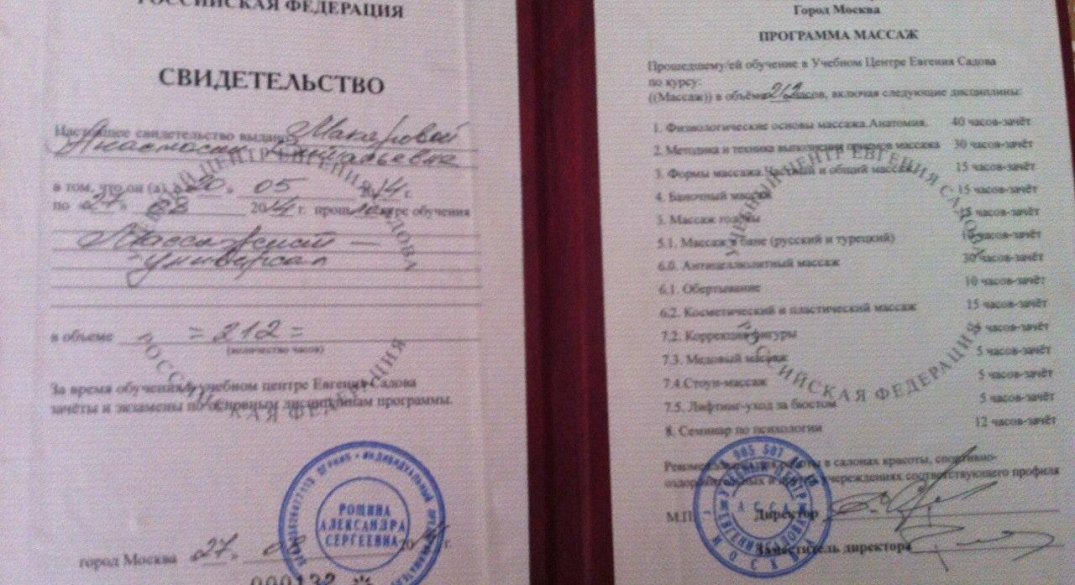 РОССИЙСКАЯ ФЕДЕРАЦИЯ
СВИДЕТЕЛЬСТВО
Настоящее свидетельство выдано Макаровой
Анастасии Витальевне
в том, что он (а) с «20» 05 2014 г.
по «27» 2014 г. обучения
Массажист —
универсал
в объеме = 212 =
(количество часов)
За время обучения в учебном центре Евгения Садова
зачёты и экзамены по основным дисциплинам программы.
УЧЕБНЫЙ ЦЕНТР ЕВГЕНИЯ САДОВА
РОССИЙСКАЯ ФЕДЕРАЦИЯ
ИНДИВИДУАЛЬНЫЙ
РОЩИНА
АЛЕКСАНДРА
СЕРГЕЕВНА
город Москва 27 г.
000132
Город Москва
ПРОГРАММА МАССАЖ
Прошедшему/ей обучение в Учебном Центре Евгения Садова
по курсу:
((Массаж)) в объёме 212 часов, включая следующие дисциплины:
1. Физиологические основы массажа.Анатомия. 40 часов-зачёт
2. Методика и техника выполнения приемов массажа 30 часов-зачёт
3. Формы массажа.Частный и общий массаж 15 часов-зачёт
4. Баночный массаж 15 часов-зачёт
5. Массаж головы 15 часов-зачёт
5.1. Массаж в бане (русский и турецкий) 10 часов-зачёт
6.0. Антицеллюлитный массаж 30 часов-зачёт
6.1. Обертывание 10 часов-зачёт
6.2. Косметический и пластический массаж 15 часов-зачёт
7.2. Коррекция фигуры 05 часов-зачёт
7.3. Медовый массаж 5 часов-зачёт
7.4.Стоун-массаж 5 часов-зачёт
7.5. Лифтинг-уход за бюстом 5 часов-зачёт
8. Семинар по психологии 12 часов-зачёт
УЧЕБНЫЙ ЦЕНТР ЕВГЕНИЯ САДОВА
РОССИЙСКАЯ ФЕДЕРАЦИЯ
в салонах красоты, спортивно-
оздоровительных и учереждениях соответствующего профиля
М.П. Директор
Заместитель директора
МОСКВА